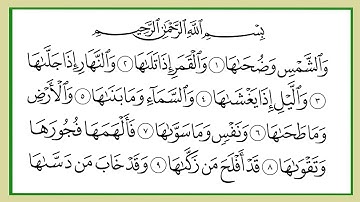 بِسْمِ ٱللَّهِ ٱلرَّحْمَٰنِ ٱلرَّحِيمِ
وَٱلشَّمْسِ وَضُحَىٰهَا ١ وَٱلْقَمَرِ إِذَا تَلَىٰهَا ٢ وَٱلنَّهَارِ إِذَا جَلَّىٰهَا
٣ وَٱلَّيْلِ إِذَا يَغْشَىٰهَا ٤ وَٱلسَّمَآءِ وَمَا بَنَىٰهَا ٥ وَٱلْأَرْضِ
وَمَا طَحَىٰهَا ٦ وَنَفْسٍ وَمَا سَوَّىٰهَا ٧ فَأَلْهَمَهَا فُجُورَهَا
وَتَقْوَىٰهَا ٨ قَدْ أَفْلَحَ مَن زَكَّىٰهَا ٩ وَقَدْ خَابَ مَن دَسَّىٰهَا